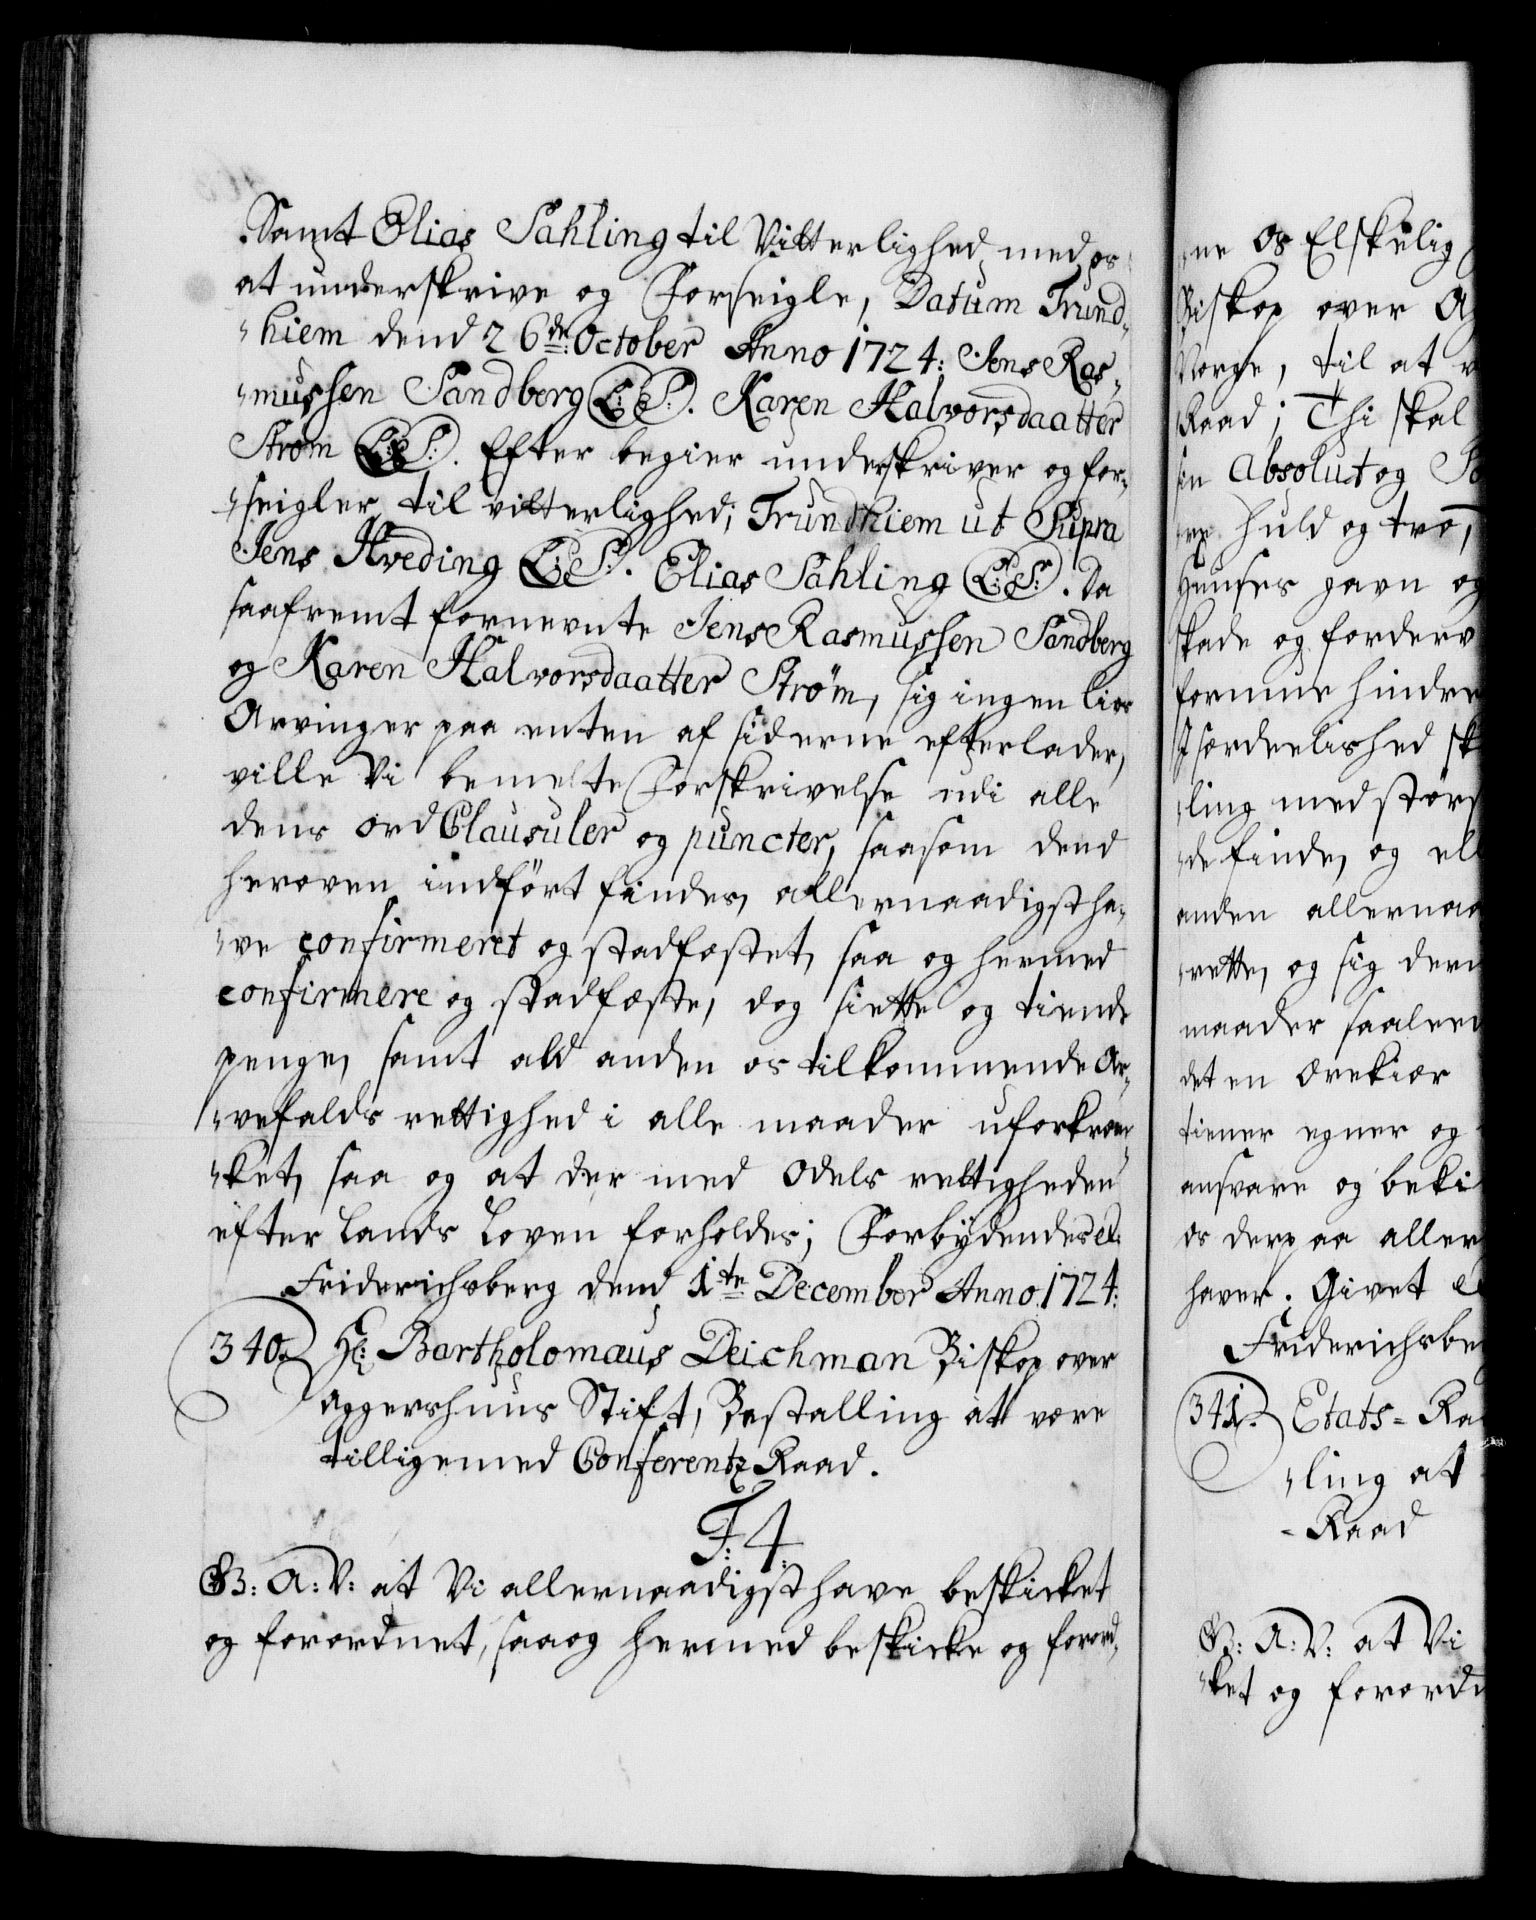 Samt Elias Sahling til Vitterlighed med os
at underskrive og Forseigle, Datum Trund-
hiem dend 26de October Anno 1724: Jens Ras-
mussen Sandberg L:S:. Karen Halvorsdaatter
Strøm L:S:. Efter begier underskriver og for-
seigler til vitterlighed; Trundhiem ut Supra
Jens Hveding L:S:. Elias Sahling L:S:. Da
saafremt fornevnte Jens Rasmussen Sandberg
og Karen Halvorsdaatter Strøm, sig ingen livs
Arvinger paa enten af siderne efterlader,
ville Vi bemelte Forskrivelse udi alle
dens ord Clausuler og puncter, saasom dend
heroven indført findes, allernaadigst ha-
ve confirmeret og stadfæstet, saa og hermed
confirmere og stadfæste, dog siette og tiende
penge, samt ald anden os tilkommende Ar-
vefalds rettighed i alle maader uforkræn-
ket, saa og at der med Odels rettigheden
efter Lands Loven forholdes; Forbydendes etc:
Friderichsberg dend 1ste December Anno 1724:
340. Hr: Bartholomæus Deichman Biskop over
Aggershuus Stift, Bestalling at være
tilligemed Conferentz Raad.
F: 4:
G: A: V: at Vi allernaadigst have beskicket
og forordnet, saa og hermed beskicke og forord-
ne Os Elskelig
Biskop over A
Norge, til at v
Raad; Thi skal
sin absolut og
re huld og tro,
Huuses gavn og
skade og forderv
formue hindre
Isærdeelished sk
ling med størs
de finde, og el
anden allernaa
rette, og sig der
maader saalee
det en ærekiær
tiener egner og
ansvare og beki
os derpaa aller
haver. Givet
Friderichsbe
341. Etats-Ra
ling at
Raad
G: A: V: at Vi
ket og forord